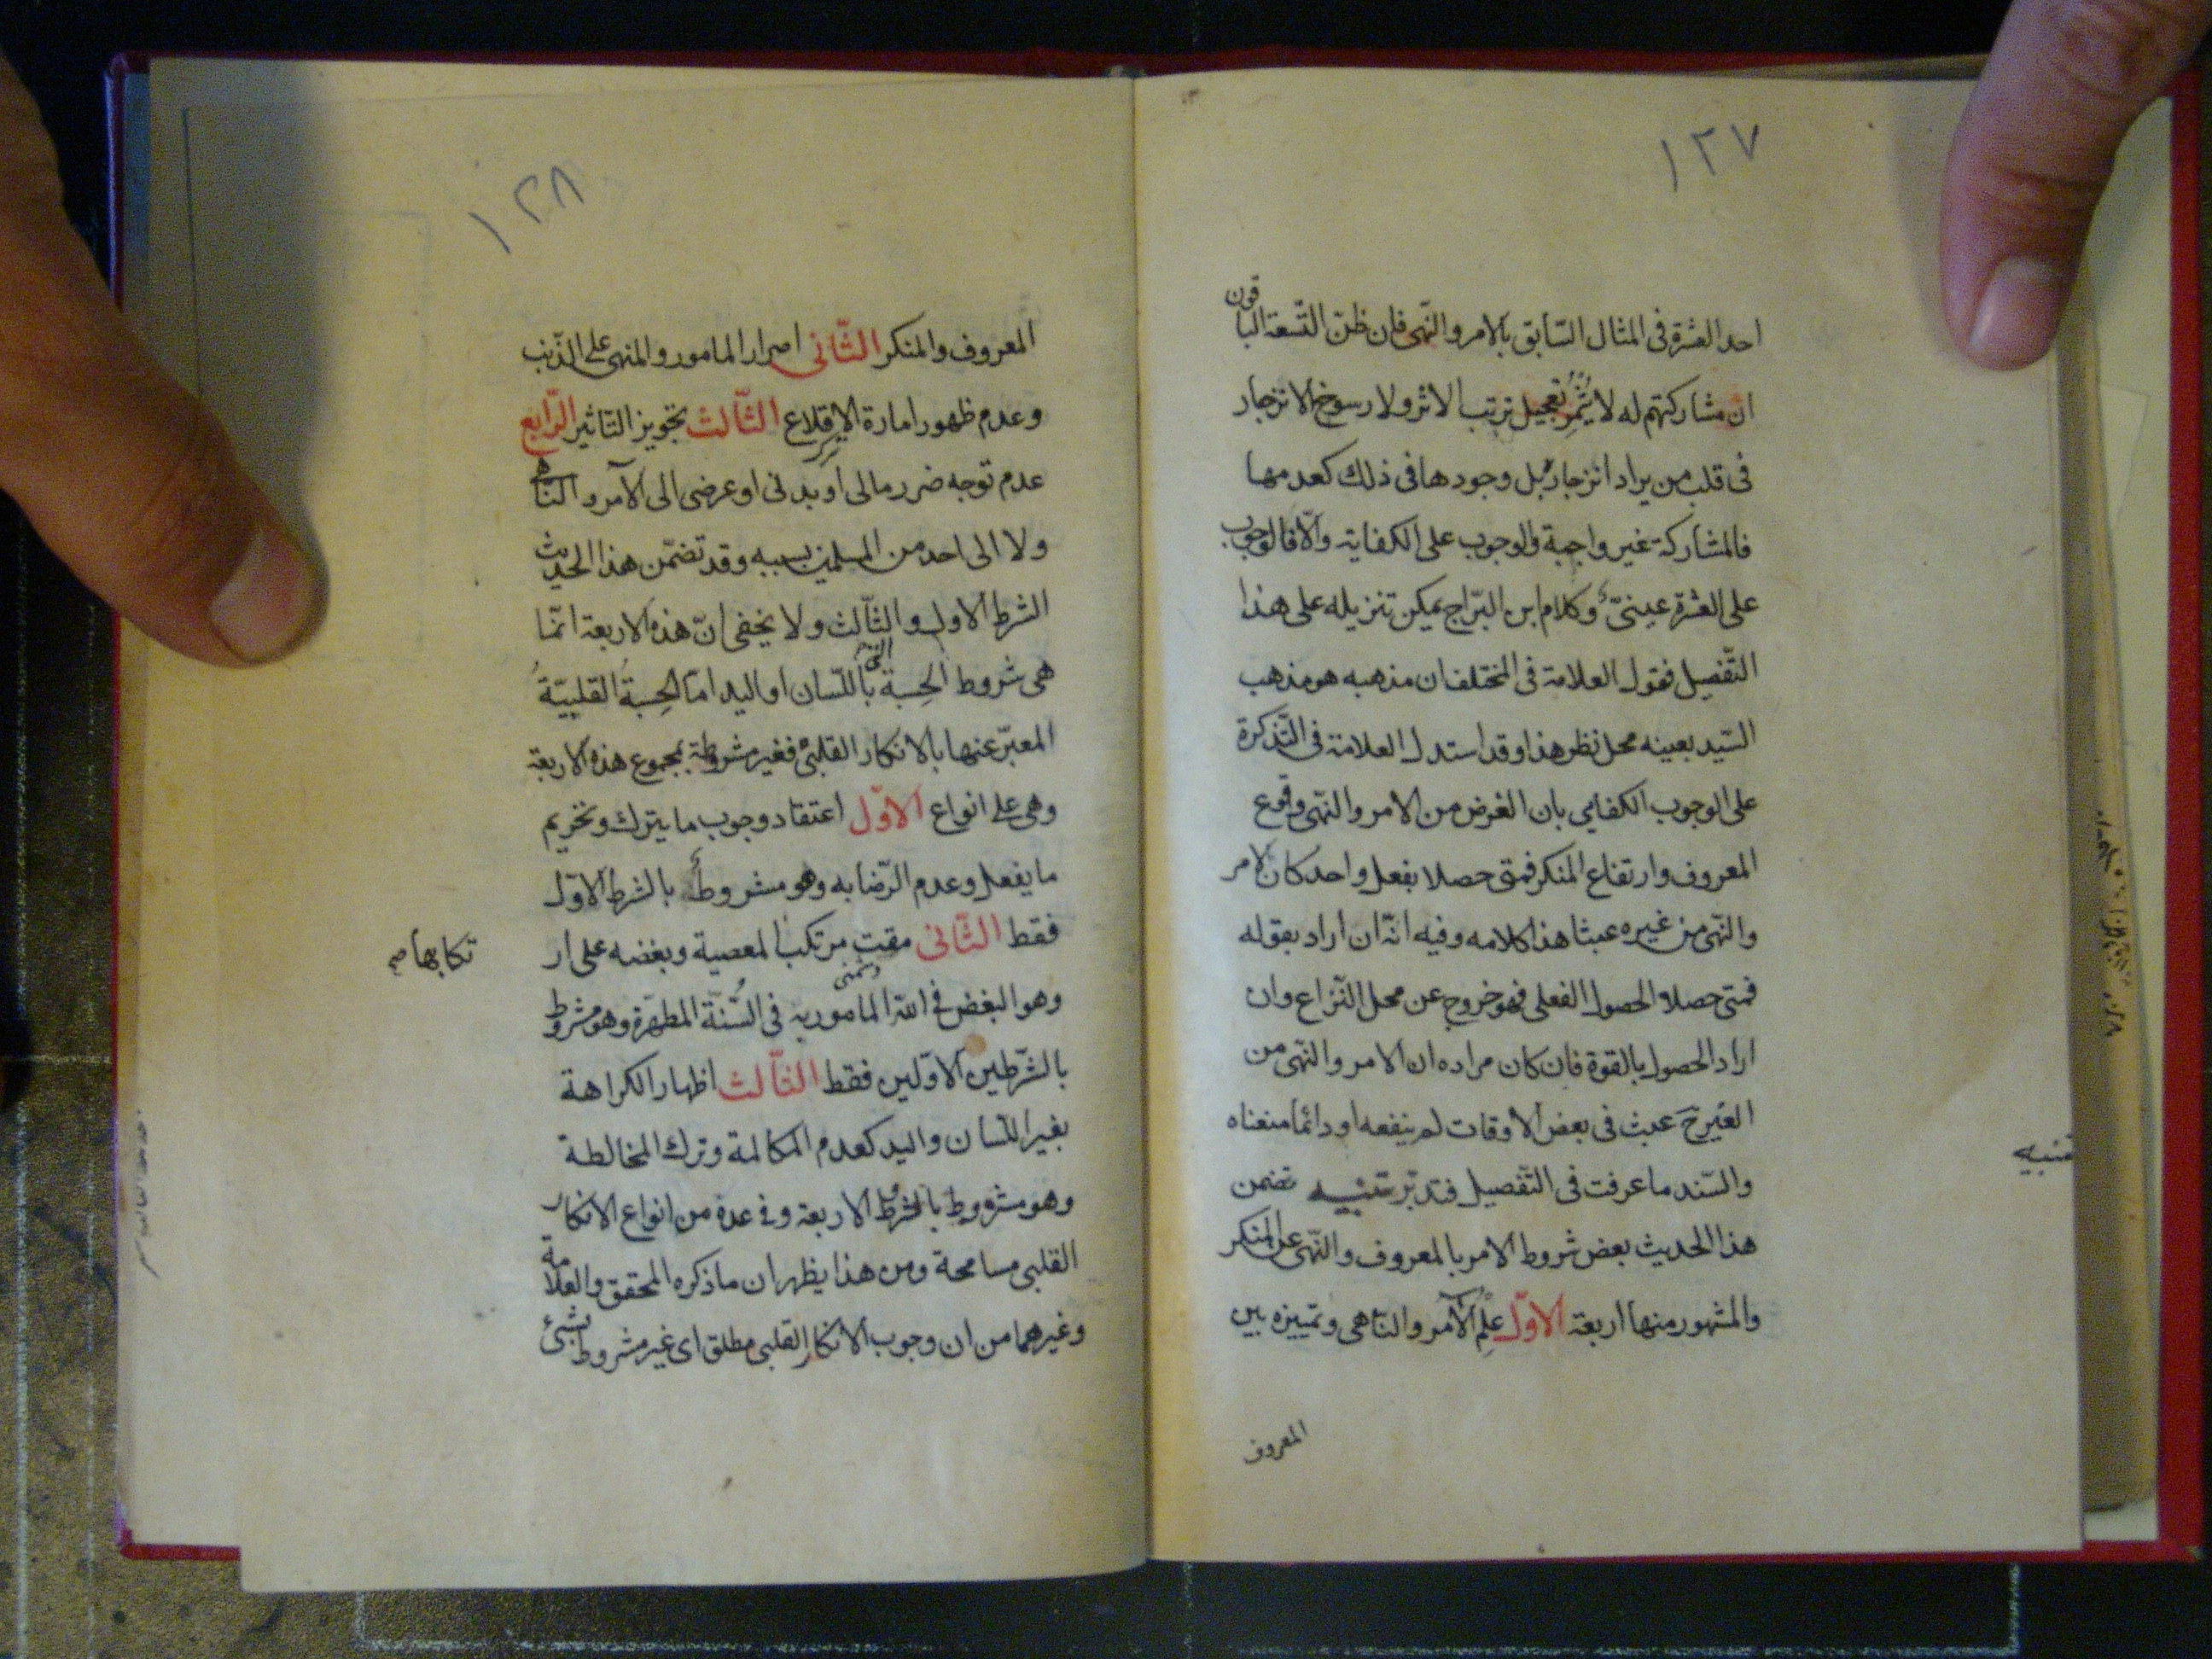 ١٢٧
احد العشرة فى المثال السّابق بالامر والنّهى فان ظنّ التّسعة الباقون
ان مشاركتهم له لا يُثمِرُ تعجيل ترتب الاثر ولا رسوخ الانزجار
فى قلب من يراد انزجاره بل وجودها فى ذلك كعدمها
فالمشاركة غير واجبة والوجوب على الكفاية والّا فالوجوب
على العشرة عينىّ وكلام ابن البرّاج يمكن تنزيله على هذا
التّفصيل فقول العلامة فى المختلف ان مذهبه هو مذهب
السّيد بعينه محل نظر هذا وقد استدل العلامة فى التّذكرة
على الوجوب الكفايى بان الغرض من الامر والنّهى وقوع
المعروف وارتفاع المنكر فمتى حصلا بفعل واحد كان الامر
والنّهى من غيره عبثا هذا كلامه وفيه انّه ان اراد بقوله
فمتى حصلا الحصول الفعلى فهو خروج عن محل النّزاع وان
اراد الحصول بالقوة فان كان مراده ان الامر والنّهى من
الغير حَ عبث فى بعض الاوقات لم ينفعه او دائما منعناه
والسّند ما عرفت فى التّفصيل فتدبّر تنبيه تضمن
تنبيه
هذا الحديث بعض شروط الامر بالمعروف والنّهى عن المنكر
والمشهور منها اربعة الاوّل عِلْم الآمر والنّاهى وتمييزه بين
المعروف
١٢٨
المعروف والمنكر الثّانى اصرار المامور والمنهى على الذّنب
وعدم ظهور امارة الاقلاع الثّالث تجويز التّاثير الرّابع
عدم توجه ضرر مالى او بدنى او عرضى الى الآمر والنّاهى
ولا الى احد من المسلمين بسببه وقد تضمّن هذا الحديث
الشرط الاول والثّالث ولا يخفى انّ هذه الاربعة انّما
هى شروط الحِسبة التى باللّسان او اليد امّا الحِسبةُ القلبيّةُ
المعبّر عنها بالانكار القلبىّ فغير مشروطة بمجموع هذه الاربعة
وهى على انواع الاوّل اعتقاد وجوب ما يترك وتحريم
ما يفعل وعدم الرّضا به وهو مشروط بالشرط الاوّل
فقط الثّانى مقت مرتكب المعصية وبغضه على ار
تكابها صح
وهو البغض فى اللّه المامور به فى السُّنّة المطهّرة وهو مشروط
بالشّرطين الاوّلين فقط الثّالث اظهار الكراهة
بغير اللّسان واليد كعدم المكالمة وترك المخالطة
وهو مشروط بالشروط الاربعة وفى عده من انواع الانكار
القلبى مسامحة ومن هذا يظهر ان ما ذكره المحقق والعلامة
وغيرهما من ان وجوب الانكار القلبى مطلق اى غير مشروط بشئ